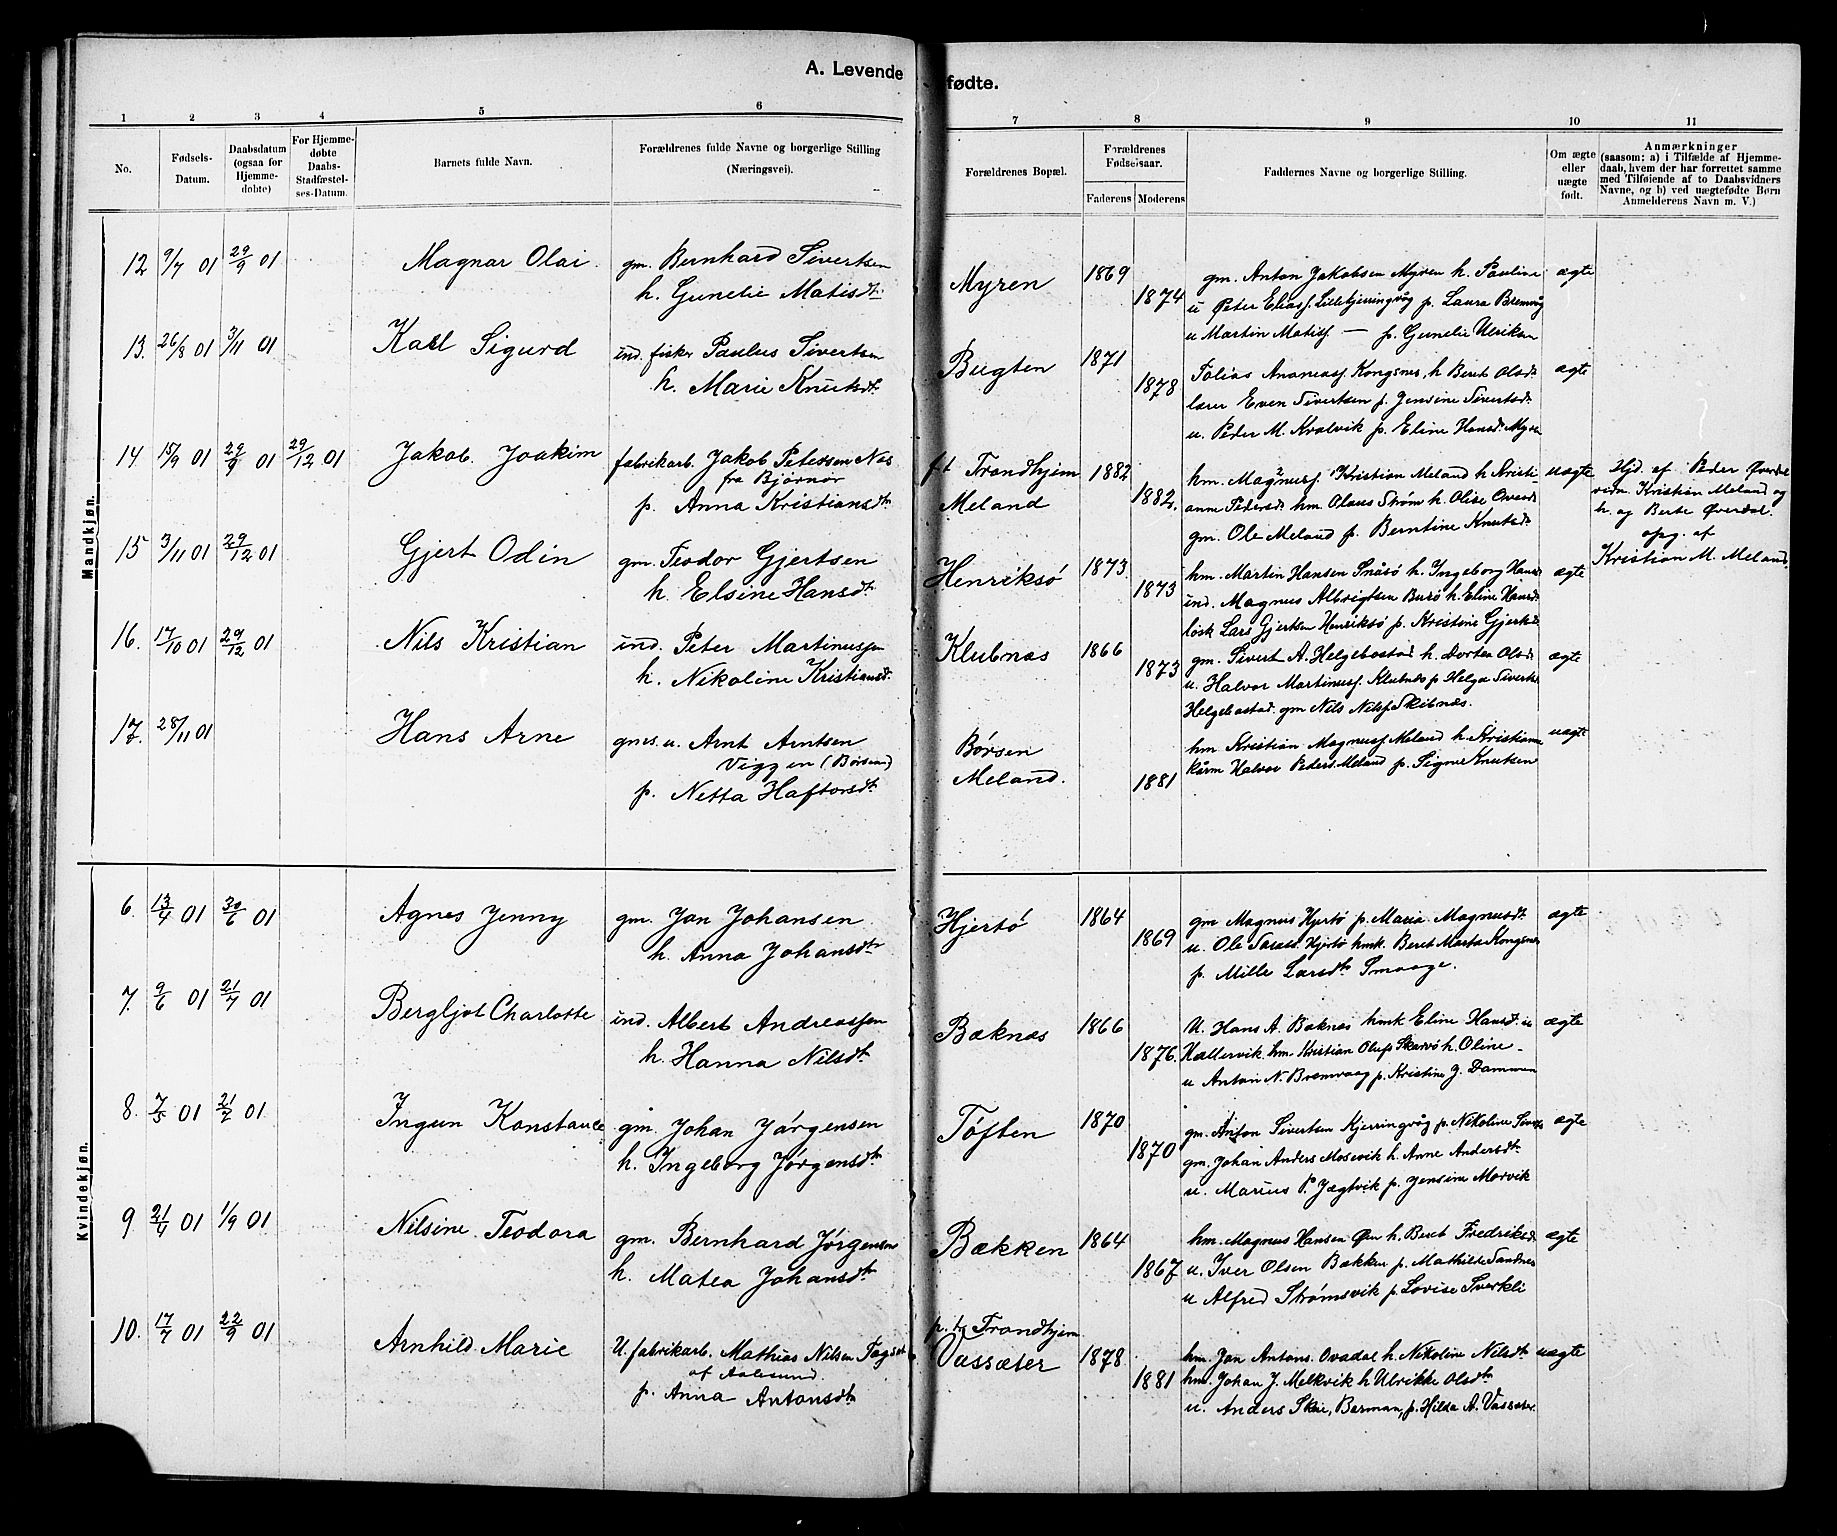 A. Levende fødte.
1 2 3 4 5 6 7 8 9 10 11
No.
Fødsels-Datum.
Daabsdatum (ogsaa for Hjemme-døbte)
For Hjemme-døbte Daabs-Stadfæstel-ses-Datum.
Barnets fulde Navn.
Forældrenes fulde Navne og borgerlige Stilling
(Næringsvei).
Forældrenes Bopæl.
Forældrenes Fødselsaar.
Faderens Moderens
Faddernes Navne og borgerlige Stilling.
Om ægte eller uægte født.
Anmærkninger
(saasom: a) i Tilfælde af Hjemme-
daab, hvem der har forrettet samme
med Tilføiende af to Daabsvidners
Navne, og b) ved uægtefødte Børn
Anmelderens Navn m. V.)
Mandkjøn.
12 9/7 01 29/9 01 Magnar Olai. gm. Bernhard Sivertsen Myren 1869 gm. Anton Jakobsen Myren h. Pauline ægte
h. Gunelie Matisdt. 1874 u Peter Eliasf. Lillekjerringvåg p. Laura Bremvåg
u Martin Matisf — p. Gunelie Ulrikan
13. 26/8 01 3/11 01 Karl Sigurd ind. fisker Paulus Sivertsen Bugten 1871 Tolias Ananiasf. Kongsnes, h Beret Olsdt. ægte
h. Marie Knutsdt. 1878 lærer Even Sivertsen p. Jensine Sivertsdt.
u. Peder M. Kvalvik p. Eline Hansdt. Myren
14 15/9 01 29/9 01 29/12 01 Jakob. Joakim fabrikarb. Jakob Petersen Nes ft Trondhjem 1882 hm. Magnusf. Kristian Meland h Kristi- uægte Hjd. af Peder Øverdal
fra Bjørnør
p. Anna Kristiansdt. Meland 1882. anne Pedersdt. hm Olaus Strøm h. Olise
gm. Ole Meland p. Berntine Knutsdt.
vidn. Kristian Meland og
h. og Berte Øverdal.
opg. af
Kristian M. Meland.
15 3/11 01 29/12 01 Gjert Odin gm. Teodor Gjertsen Henriksø 1873. hm. Martin Hansen Snåsø h. Ingeborg Hansdt. ægte
h. Elsine Hansdt. 1873 ind. Magnus Albrigtsen Burø h. Eline Hansdt.
løsk Lars Gjertsen Henriksø p. Kristine Gjertsdt.
16. 17/10 01 29/12 01 Nils Kristian ind. Peter Martinussen Klubnæs 1866 gm. Sivert A. Helgebostad h. Dortea Olsdt. ægte
h. Nikoline Kristiansdt. 1873 u. Halvor Martinusf. Klubnes p Helga Siverts
Helgebostad. gm Nils Nilsf. Skibnæs.
17. 28/11 01 Hans Arne gms. u. Arnt Arntsen Børsen hm Kristian Magnusf Meland h Kristianne uægte
Viggen (Børsen)
p. Netta Haftorsdt. Meland. 1881 Halvor Peders. Meland p. Signe Knutsen
Kvindekjøn.
6. 13/4 01 30/6 01 Agnes Jenny gm. Jan Johansen Hjertø 1864 gm Magnus Hjertø p. Maria Magnusdt. ægte
h. Anna Johansdt. 1869 u. Ole Hjertø hmk. Beret Marta Kongsnes
p. Mille Larsdtr Smaage.
7. 9/6 01 21/7 01 Bergljot Charlotte ind. Albert Andreassen Bæknæs 1866 U. Hans A. Bæknæs hmk Eline Hansdt. ægte
h. Hanna Nilsdt. 1876. Hallervik. hm Kristian Oluf Skarvø h. Oline
u Anton N. Bremvaag p. Kristine J. Dammen
8. 7/5 01 21/7 01 Ingun Konstance gm. Johan Jørgensen Tøften 1870 gm. Anton Sivertsen Kjerringvåg p. Nikoline ægte
h. Ingeborg Jørgensdt. 1870 gm. Johan Anders Mosevik h. Anne Andersdt.
u. Marius P. Jægtvik p. Jensine Morvik
9 21/4 01 1/9 01 Nilsine Teodora gm. Bernhard Jørgensen Bækken 1864 hm. Magnus Hansen Øen h. Beret Fredriksdt. ægte
h. Matea Johansdt. 1867 u. Iver Olsen Bækken p. Mathilde Sandnes
u Alfred Strømsvik p. Lovise Sverkli
10. 17/7 01 22/9 01 Arnhild. Marie U. fabrikarb. Mathias Nilsen p. t. Trondhjem
Vassæter 1878 hm. Jan Antons. Ovadal h. Nikoline Nilsdt. uægte
af Aalesund.
p. Anna Antonsdt. 1881 hm. Johan J. Melkvik h Ulrikke Olsdt.
u. Anders Skei, Barman, p. Hilda A. Vassæter.